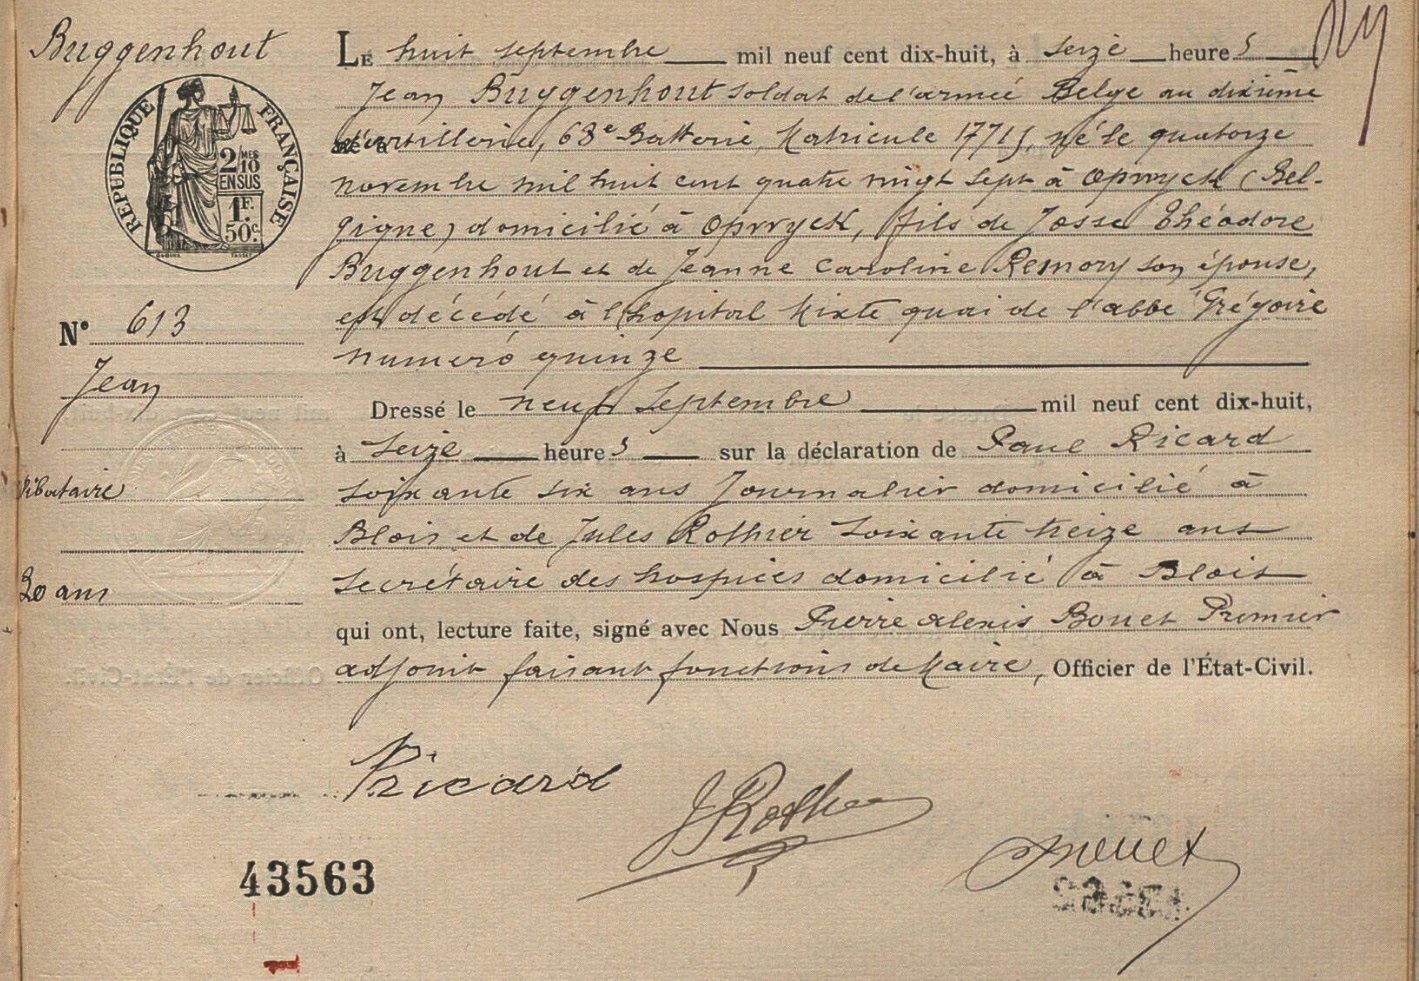 Buggenhout
RÉPUBLIQUE FRANÇAISE
2/10 MES
EN SUS
1F.
50c.
N° 613
Jean
30 ans
LE huit septembre mil neuf cent dix-huit, à seize heures
Jean Buggenhout soldat de l'armée Belge au dixième
d'artillerie, 63e Batterie, Matricule 1771, né le quatorze
novembre mil huit cent quatre vingt sept à Opwyck (Bel-
gique) domicilié à Opwyck, fils de Josse Théodore
Buggenhout et de Jeanne Caroline Remory son épouse,
est décédé à l'hopital Mixte quai de l'abbé Grégoire
numéro quinze
Dressé le neuf septembre mil neuf cent dix-huit,
à seize heures sur la déclaration de Paul Ricard
soixante six ans Journalier domicilié à
Blois et de Jules Rothier soixante treize ans
secrétaire des hospices domicilié à Blois
qui ont, lecture faite, signé avec Nous Pierre Alexis Bouet Premier
adjoint faisant fonctions de Maire, Officier de l'État-Civil.
Ricard
J Roth
Bouet
43563